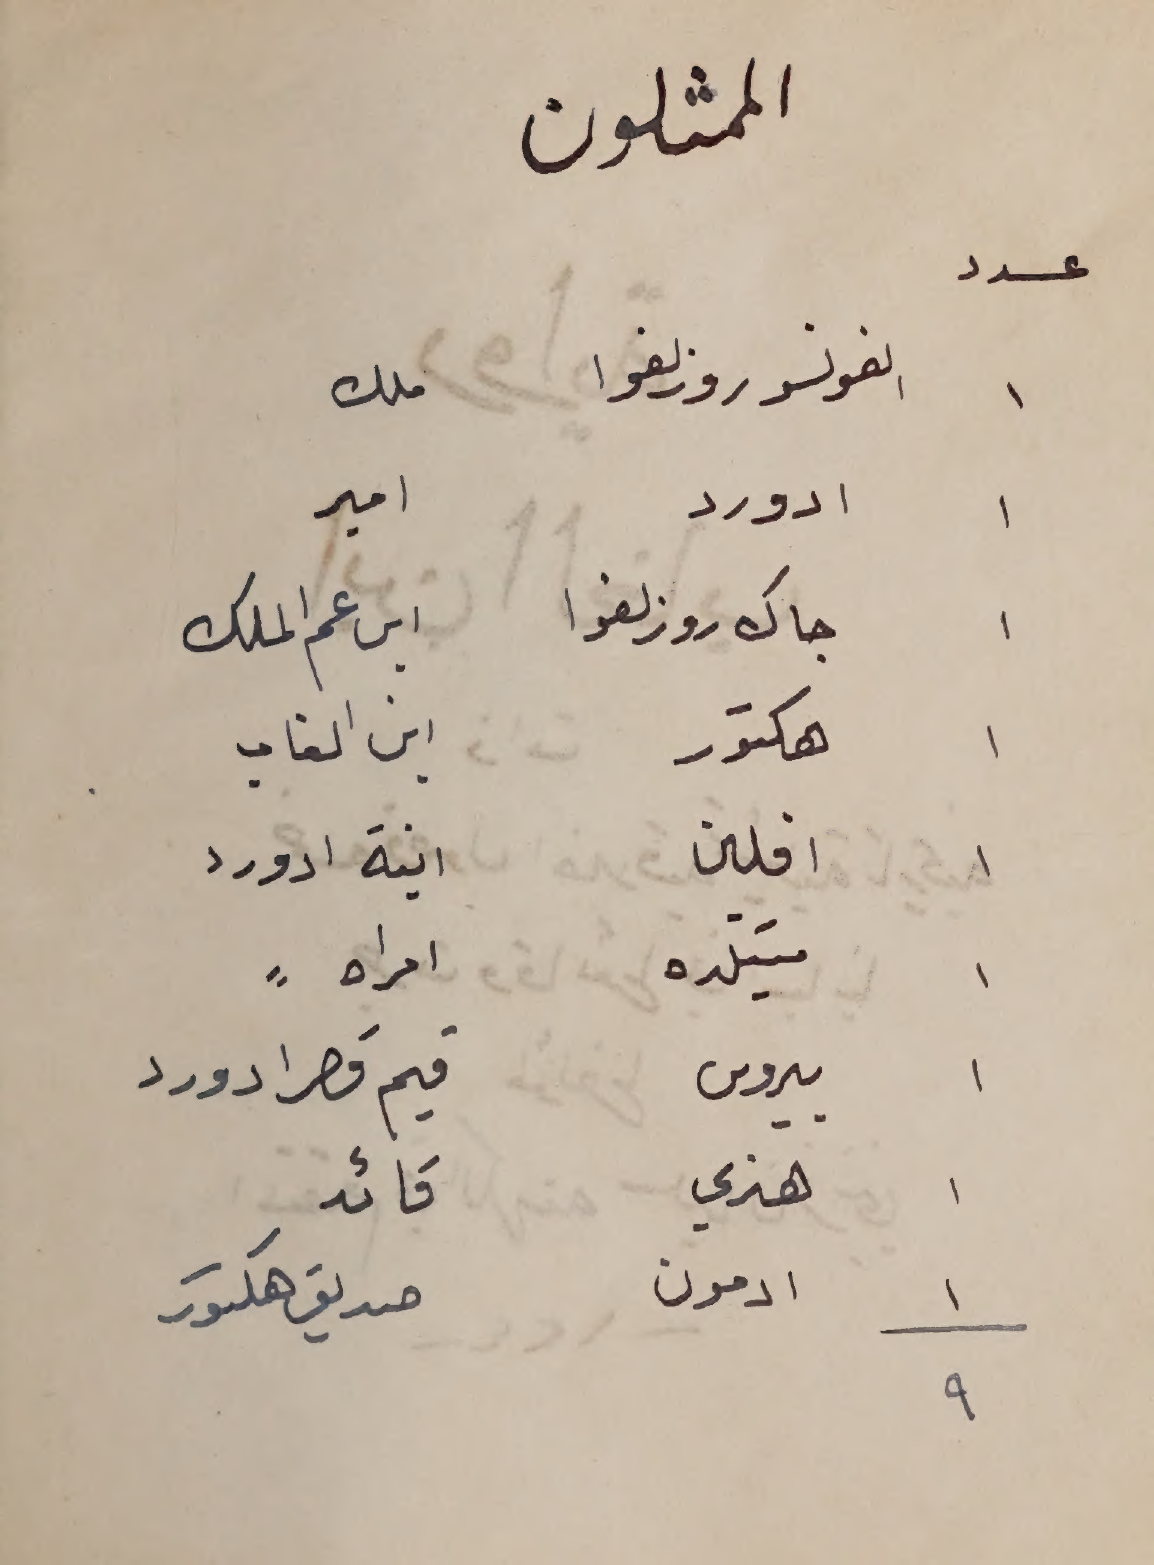 الممثلون
عدد
١ الفونسو روزلفوا ملك
١ ادورد امير
١ جاك روزلفوا ابن عم الملك
١ هكتور ابن الغاب
١ افلين ابنة ادورد
١ متيلده امراه "
١ بيروس قيم قصر ادورد
١ هنري قائد
١ ادمون صديق هكتور
٩